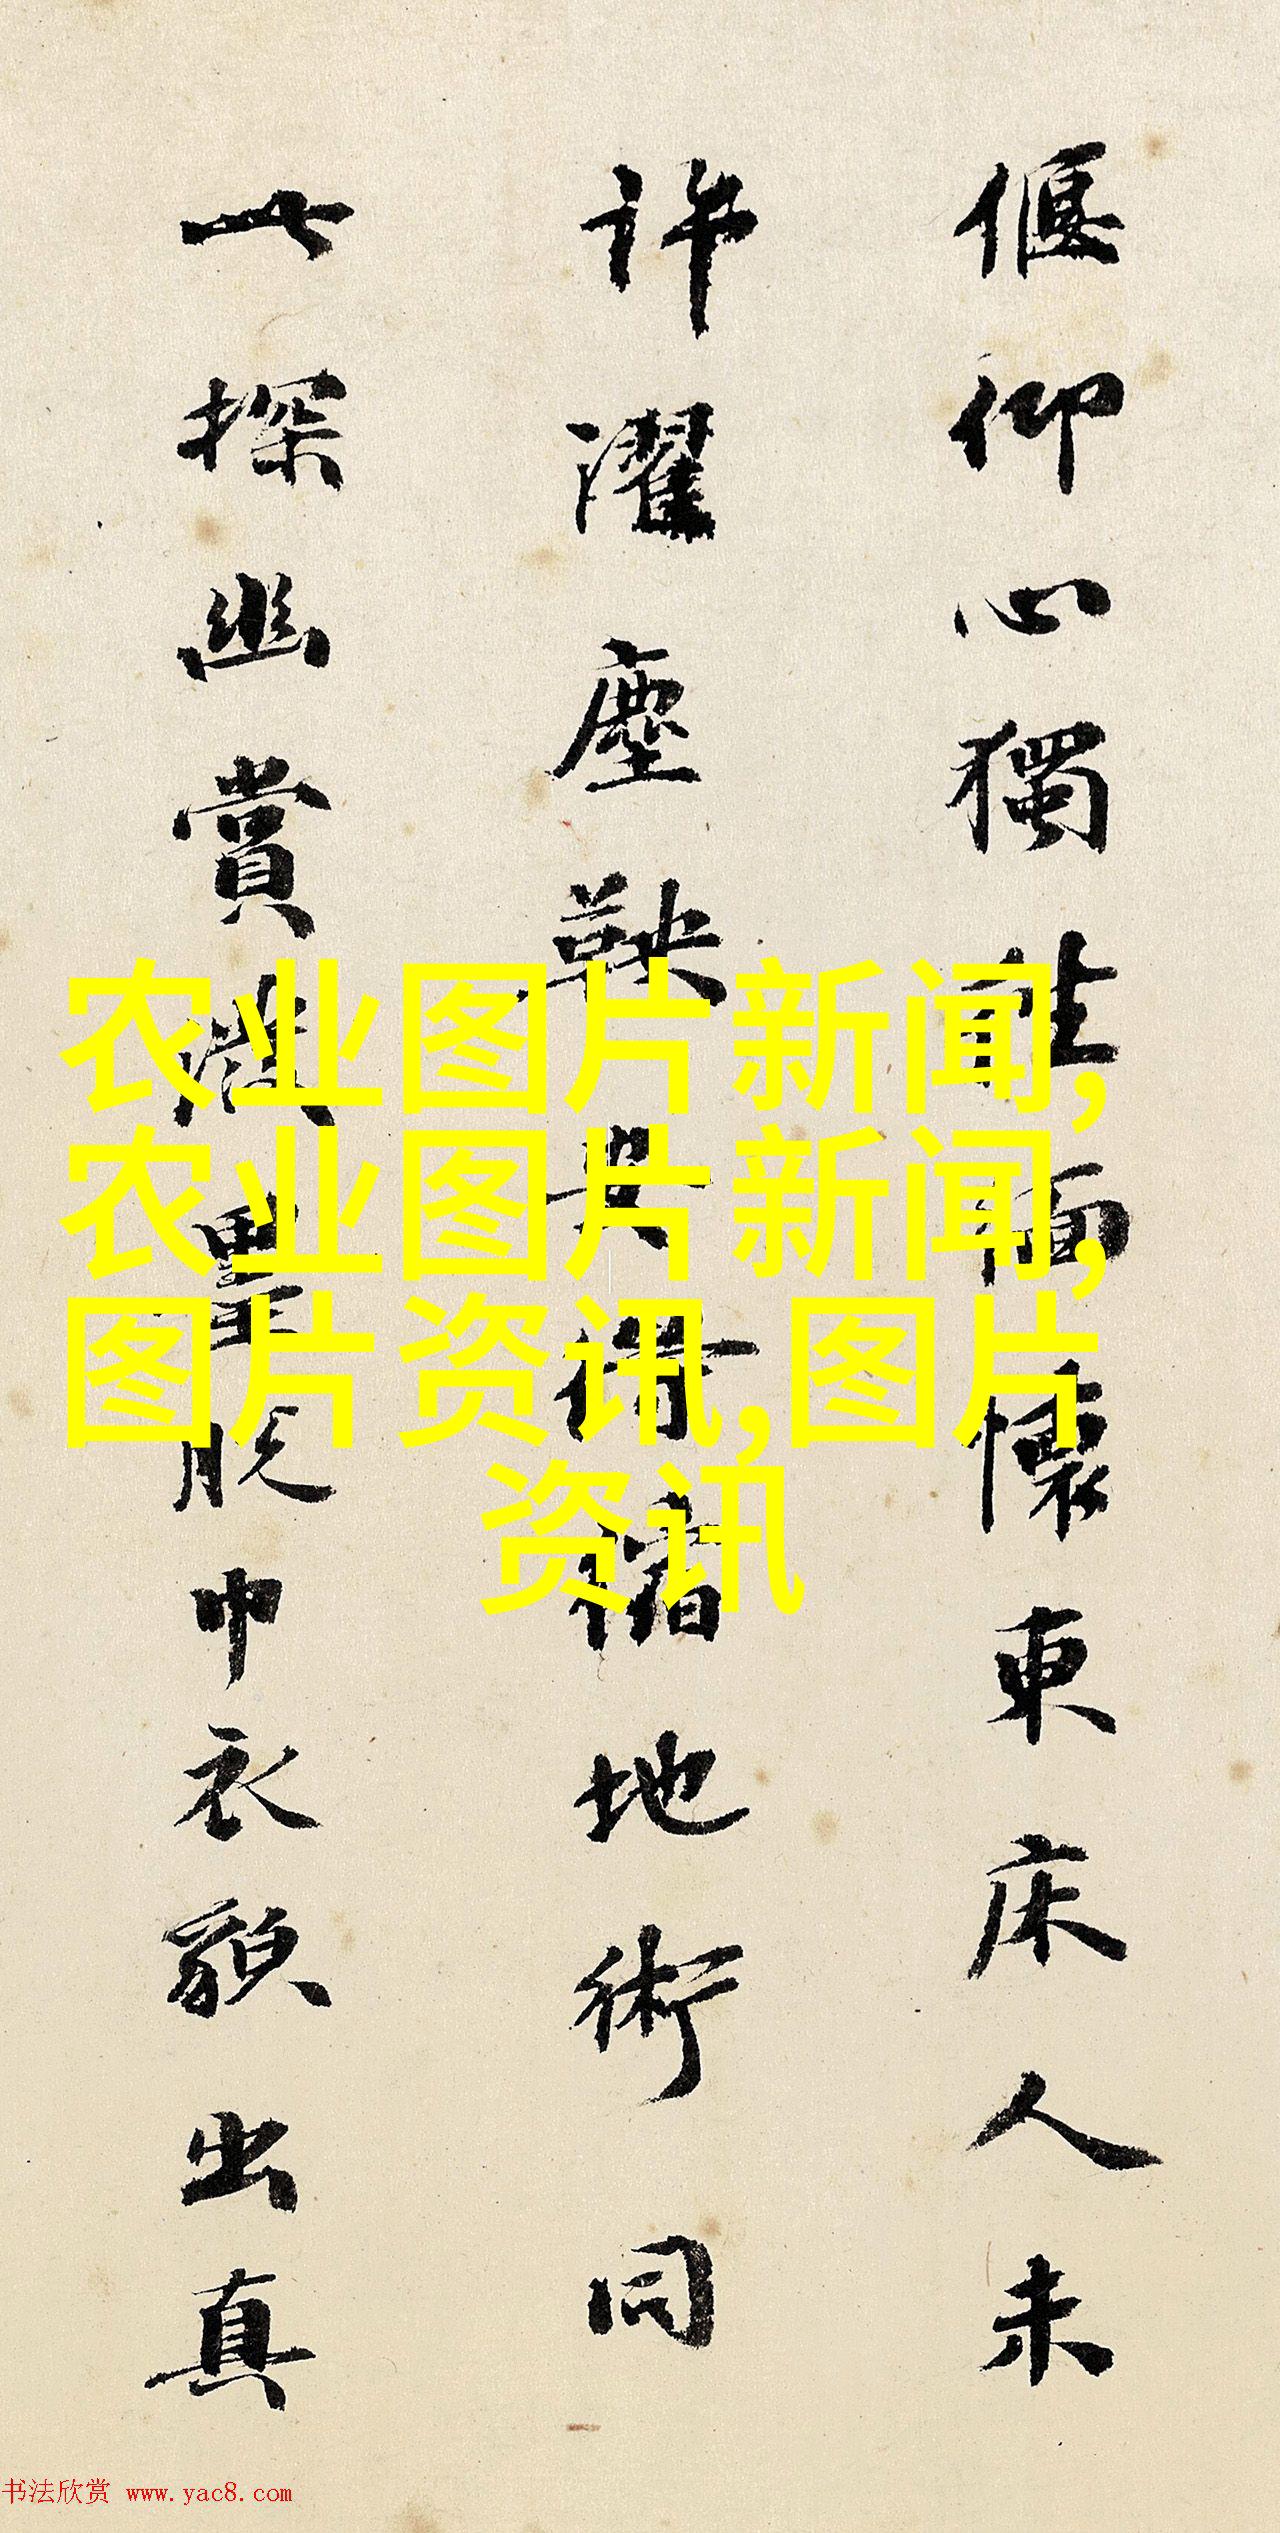 偃仰心獨往緬懷東床人未
許濯塵鞅安得縮地術同
此探幽賞濯足脫巾衣貌出真
农业图片新闻,
农业图片新闻,
图片资讯,图片
资讯
书法欣赏 www.yac8.com